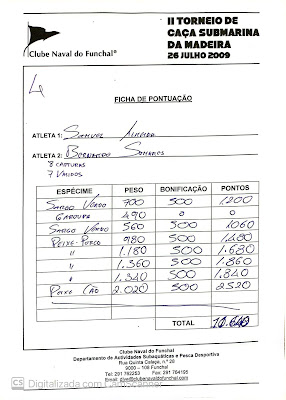 II TORNEIO DE
CAÇA SUBMARINA
DA MADEIRA
26 JULHO 2009
Clube Naval do Funchal®
4
FICHA DE PONTUAÇÃO
ATLETA 1: SAMUEL
ATLETA 2: BERNARDO
8 CAPTURAS
7 VÁLIDOS
ESPÉCIME PESO BONIFICAÇÃO PONTOS
SARGO VEADO 700 500 1200
GAROUPA 490 0 0
SARGO VEADO 560 500 1060
PEIXE-PORCO 980 500 1.480
" 1.180 500 1.680
" 1.360 500 1.860
" 1.340 500 1.840
PEIXE CÃO 2.020 500 2520
TOTAL
Clube Naval do Funchal
Departamento de Actividades Subaquáticas e Pesca Desportiva
Rua Quinta Calaça, n.º 28
9000 – 108 Funchal
CS Digitalizada com CamScanner